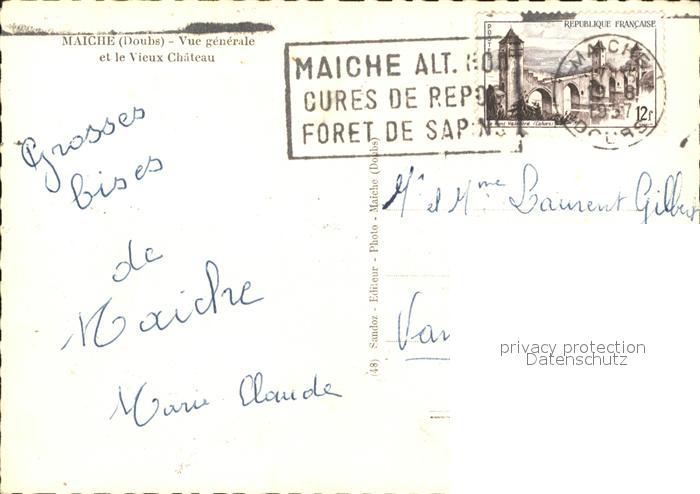 MAICHE (Doubs) - Vue générale
et le Vieux Château
MAICHE ALT.
CURES DE REPOS
FORET DE SAPINS
REPUBLIQUE FRANÇAISE
POSTES
12f
MAICHE
1957
DOUBS
Grosses
bises
de
Maiche
Marie Claude
(48) Sandoz - Editeur - Photo - Maiche (Doubs)
Mr et Mme Laurent Gilbert
Van
privacy protection
Datenschutz